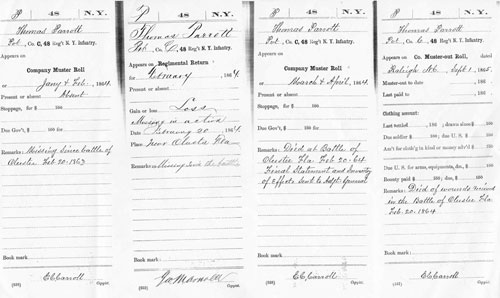 P 48 N.Y.
Thomas Parrott
Pvt, Co. C, 48 Reg't N.Y. Infantry.
Appears on
Company Muster Roll
for Jany & Feb, 1864.
Present or absent Absent
Stoppage, $ 100 for
Due Gov't, $ 100 for
Remarks: Missing since battle of
Olustee Feb. 20. 1863
Book mark:
C C Carroll
Copyist.
P 48 N.Y.
Thomas Parrott
Pvt, Co. 48 Reg't N.Y. Infantry.
Appears on
Regimental Return
for February, 1864.
Present or absent
Gain or loss Loss
Missing in action
Date February 20, 1864.
Place Near Olustee Fla
Remarks: Missing in the battle
Book mark:
Copyist.
P 48 N.Y.
Thomas Parrott
Pvt, Co. C, 48 Reg't N.Y. Infantry.
Appears on
Company Muster Roll
for March & April, 1864.
Present or absent
Stoppage, $ 100 for
Due Gov't, $ 100 for
Remarks: Died at Battle of
Olustee Fla Feb. 20-64
Final Statement and Inventory
of Effects sent to Adjt. General
Book mark:
C C Carroll
Copyist.
P 48 N.Y.
Thomas Parrott
Pvt, Co. C, 48 Reg't N.Y. Infantry.
Appears on
Co. Muster-out Roll, dated
Raleigh N.C., Sept 1, 1865.
Muster-out to date
Last paid to
Clothing account:
Last settled 186 ; drawn since $ 100
Due soldier $ 100 ; due U.S. $ 100
Am't for cloth'g in kind or money adv'd $ 100
Due U.S. for arms, equipments, &c., $ 100
Bounty paid $ 100 ; due $ 100
Remarks: Died of wounds received
in the Battle of Olustee Fla
Feb. 20. 1864
Book mark:
C C Carroll
Copyist.